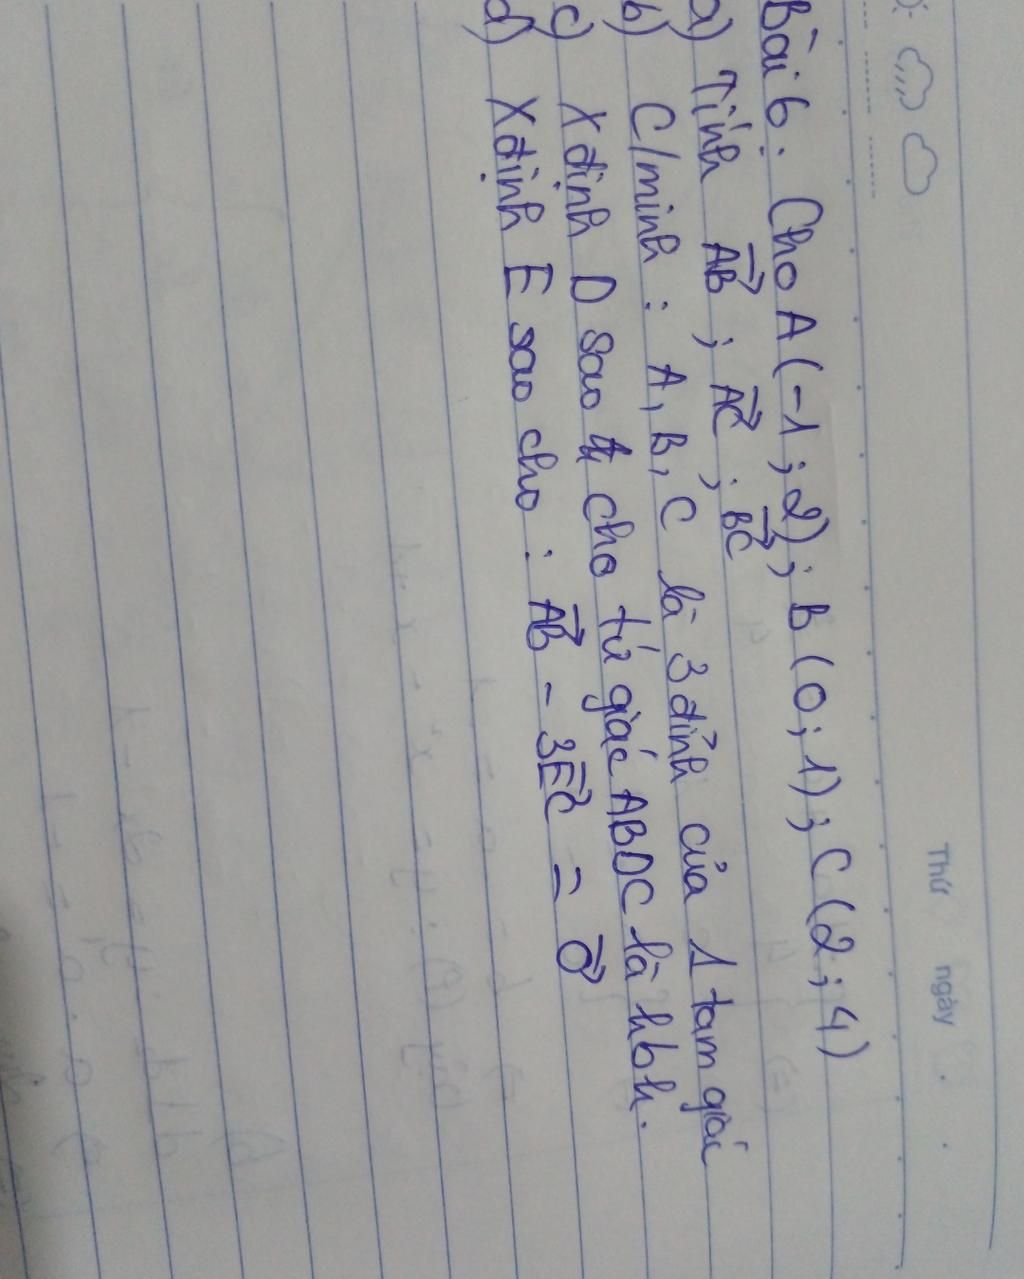 Thứ ngày
Bài 6. Cho A(-1; 2); B(0; 1); C(2; 4)
a) Tính AB→; AC→; BC→
b) C/minh: A, B, C là 3 đỉnh của 1 tam giác
c) Xđịnh D sao cho tứ giác ABDC là hbh.
d) Xđịnh E sao cho: AB→ - 3EC→ = 0→